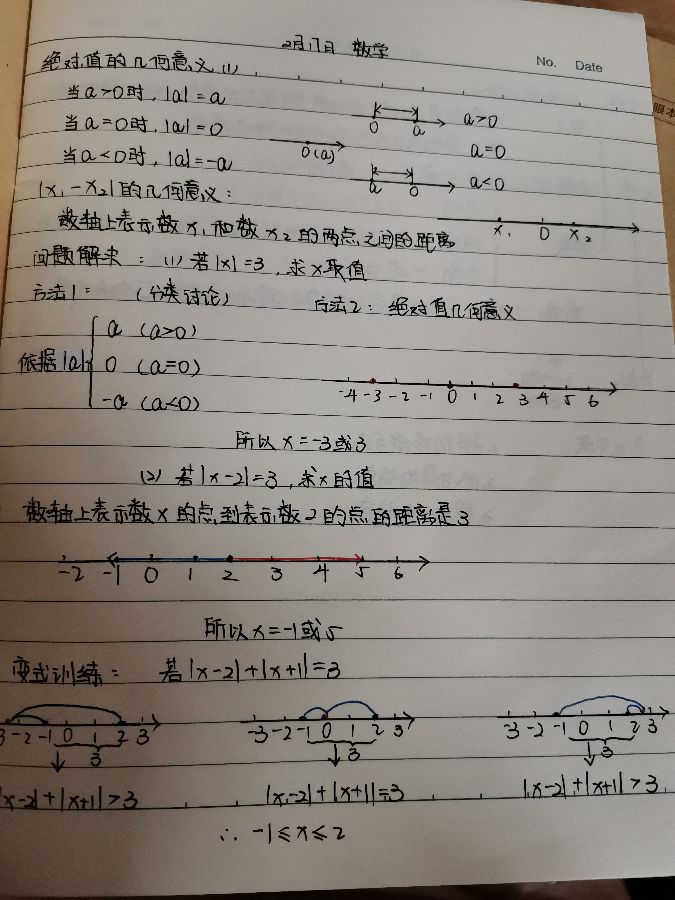 2月17日 数学
No. Date
绝对值的几何意义 (1)
当a>0时,|a|=a
0 a a>0
当a=0时,|a|=0
0(a) a=0
当a<0时,|a|=-a
a 0 a<0
|x₁-x₂|的几何意义:
x₁ 0 x₂
数轴上表示数x₁和数x₂的两点之间的距离
问题解决:(1)若|x|=3,求x取值
方法1:(分类讨论) 方法2:绝对值几何意义
a (a>0)
依据|a| 0 (a=0)
-a (a<0)
-4 -3 -2 -1 0 1 2 3 4 5 6
所以x=-3或3
(2)若|x-2|=3,求x的值
数轴上表示数x的点到表示数2的点的距离是3
-2 -1 0 1 2 3 4 5 6
所以x=-1或5
变式训练: 若|x-2|+|x+1|=3
3 -2 -1 0 1 2 3
-3 -2 -1 0 1 2 3
-3 -2 -1 0 1 2 3
3 3 3
|x-2|+|x+1|>3 |x-2|+|x+1|=3 |x-2|+|x+1|>3
∴ -1≤x≤2
眼本